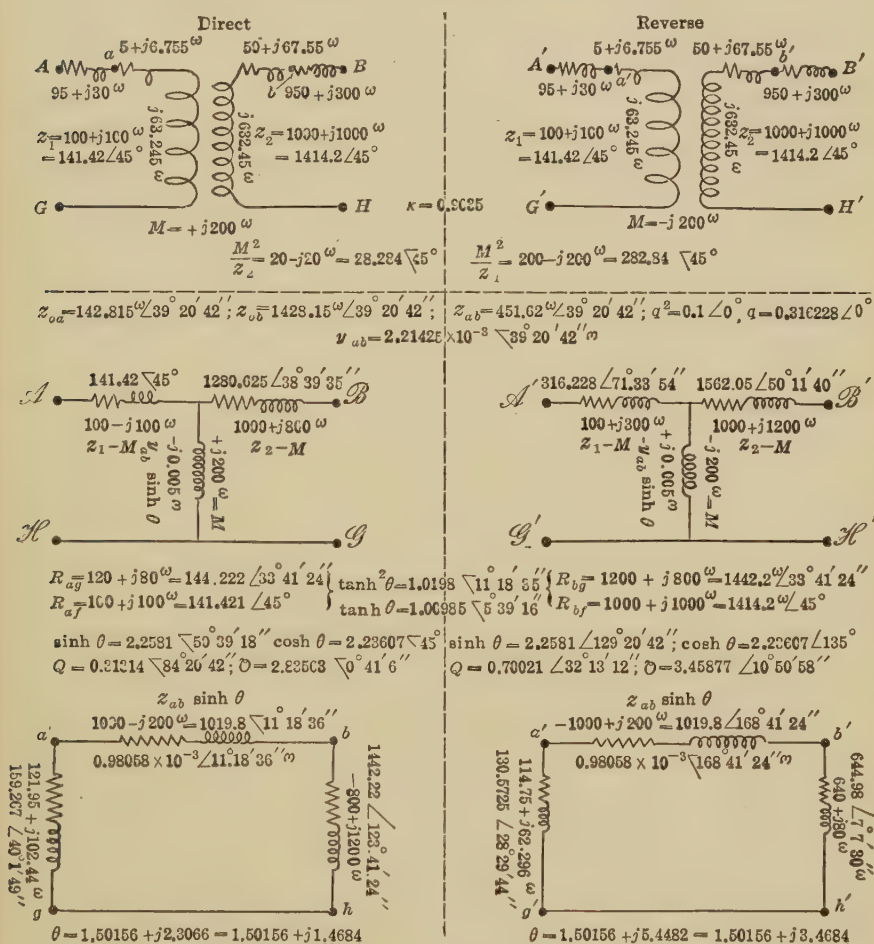 Direct
Reverse
5+j6.755 ω
50+j67.55 ω
A
a
b
B
95+j30 ω
950+j300 ω
j63.245 ω
j632.45 ω
z₁=100+j100 ω
=141.42∠45°
z₂=1000+j1000 ω
=1414.2∠45°
G
H
κ=0.9025
M=+j200 ω
5+j6.755 ω
50+j67.55 ω
A′
a′
b′
B′
95+j30 ω
950+j300 ω
j63.245 ω
j632.45 ω
z₁=100+j100 ω
=141.42∠45°
z₂=1000+j1000 ω
=1414.2∠45°
G′
H′
M=-j200 ω
M²/z₂=20-j20 ω=28.284 ⍀45°
M²/z₁=200-j200 ω=282.84 ⍀45°
z_oa=142.815 ω∠39°20′42″; z_ob=1428.15 ω∠39°20′42″; z_ab=451.62 ω∠39°20′42″; q²=0.1∠0°, q=0.316228∠0°
y_ab=2.21425×10⁻³ ⍀39°20′42″
141.42⍀45°
1280.625∠38°39′35″
A
B
100-j100 ω
1000+j800 ω
z₁-M
z₂-M
y_ab sinh θ
-j0.005
+j200 ω=M
H
G
316.228∠71.33′54″
1562.05∠50°11′40″
A′
B′
100+j300 ω
1000+j1200 ω
z₁-M
z₂-M
-y_ab sinh θ
+j0.005
-j200 ω=M
G′
H′
R_ag=120+j80 ω=144.222∠33°41′24″
R_af=100+j100 ω=141.421∠45°
tanh²θ=1.0198⍀11°18′35″
tanh θ=1.00985⍀5°39′16″
R_bg=1200+j800 ω=1442.2 ω∠33°41′24″
R_bf=1000+j1000 ω=1414.2 ω∠45°
sinh θ=2.2581⍀50°39′18″ cosh θ=2.23607⍀45°
sinh θ=2.2581∠129°20′42″; cosh θ=2.23607∠135°
z_ab sinh θ
1000-j200 ω=1019.8⍀11°18′36″
a
b
0.98058×10⁻³∠11°18′36″
121.95+j102.44 ω
159.267∠40°1′49″
1442.22∠123°.41′.24″
-800+j1200 ω
g
h
θ=1.50156+j2.3066=1.50156+j1.4684
z_ab sinh θ
-1000+j200 ω=1019.8∠168°41′24″
a′
b′
0.98058×10⁻³⍀168°41′24″
114.75+j62.296 ω
130.5725∠28°29′44″
644.98∠7°7′30″
640+j80 ω
g′
h′
θ=1.50156+j5.4482=1.50156+j3.4684